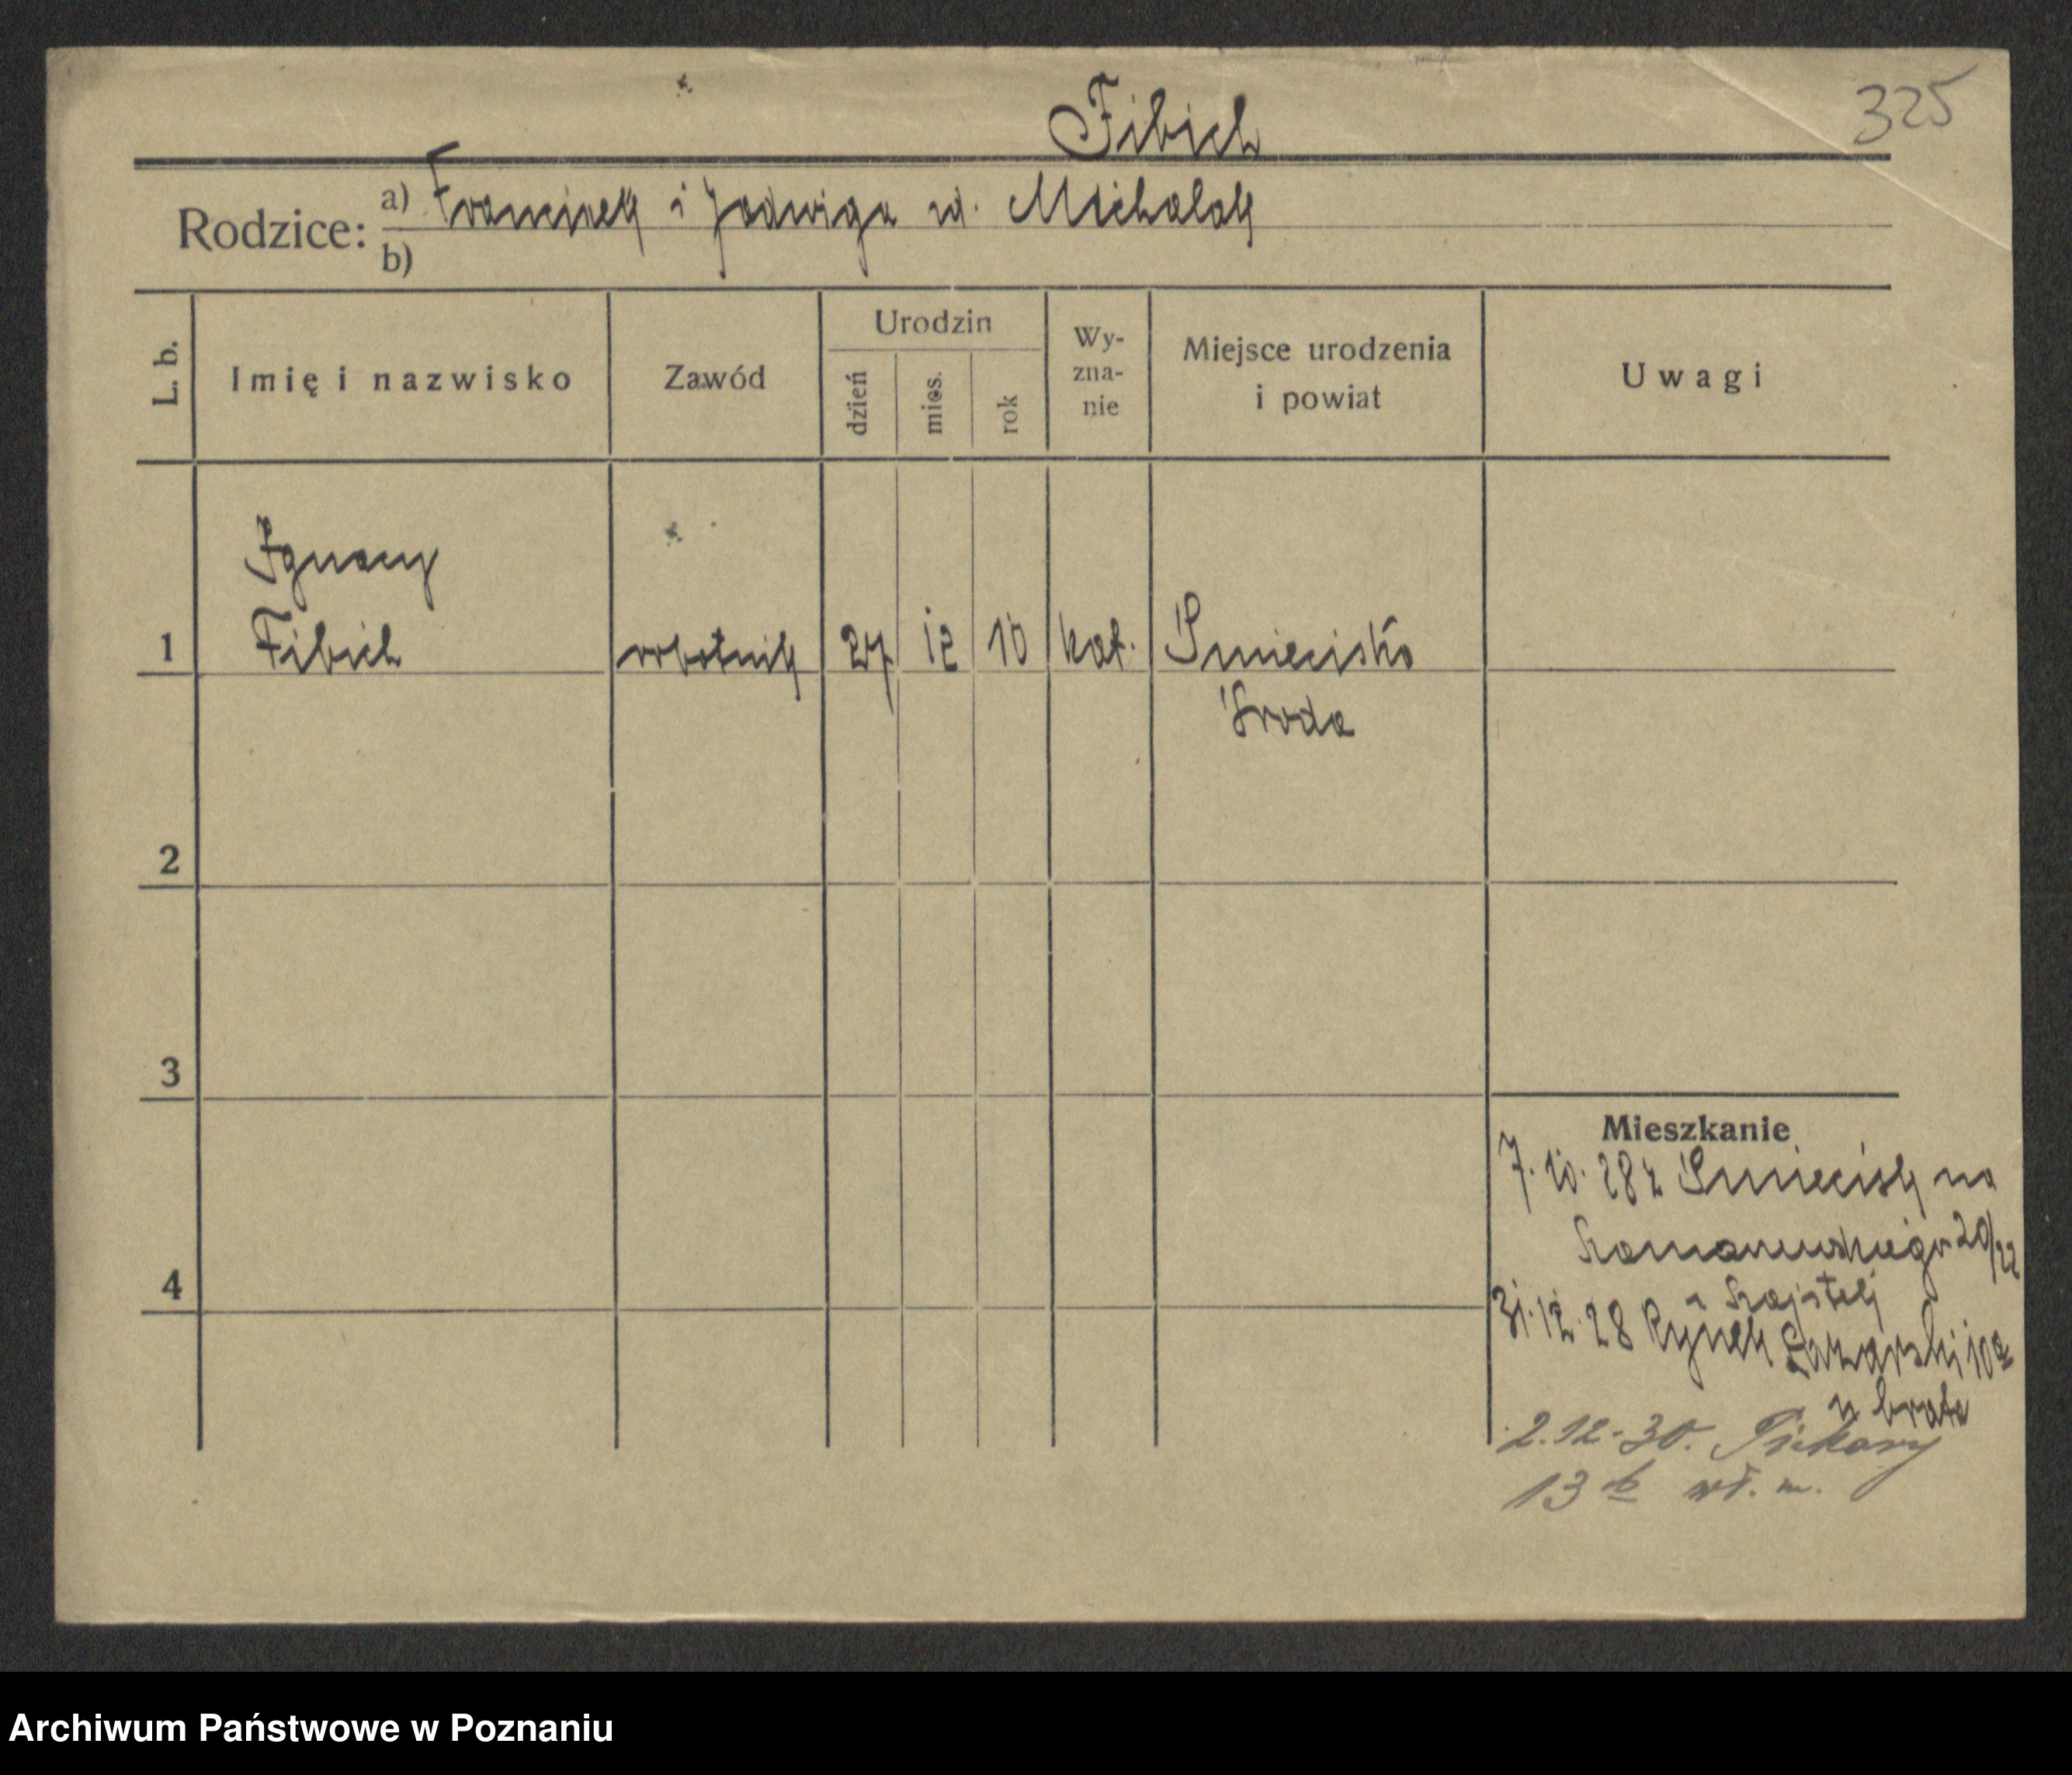 325
Fibich
Rodzice: a) Franciszek i Jadwiga zd. Michalak
b)
L. b.
Imię i nazwisko
Zawód
Urodzin
dzień
mies.
rok
Wy-
zna-
nie
Miejsce urodzenia
i powiat
Uwagi
Ignacy
1 Fibich robotnik 27 12 10 kat. Śniecisko
Środa
2
3
4
Mieszkanie
7. 10. 28 z na
20/22
31. 12. 28 Rynek Łazarski 10a
u brata
2. 12. 30. Piekary
13 b wł. m.
Archiwum Państwowe w Poznaniu